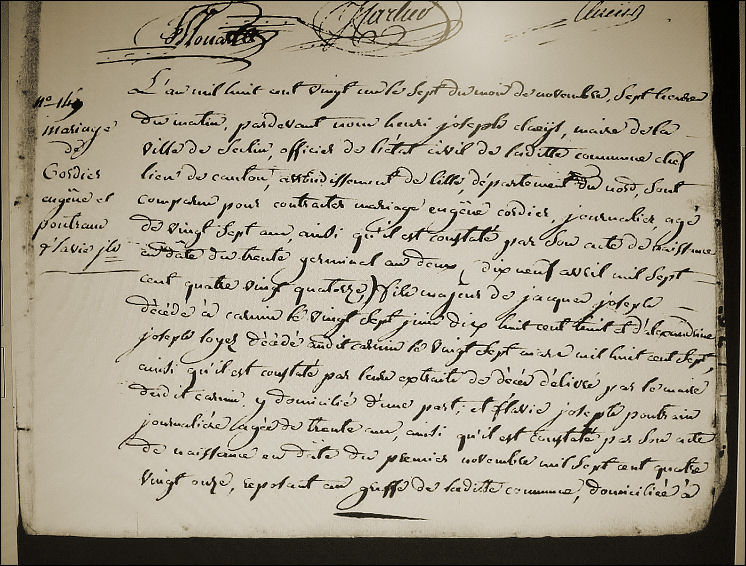 Marlier
Claeis
L'an mil huit cent vingt un le sept du mois de novembre, sept heures
du matin, pardevant nous henri joseph claeÿs, maire de la
ville de Seclin, officier de l'état civil de laditte commune chef
lieu de canton, arrondissement de lille département du nord, sont
comparu pour contracter mariage eugêne cordier, journalier, agé
de vingt sept ans, ainsi qu'il est constaté par son acte de naissance
en dâte du trente germinal an deux (dix neuf avril mil sept
cent quatre vingt quatorze,) fils majeur de jacques joseph
décédé à carnin le vingt sept juin dix huit cent huit et d'alexandrine
joseph loyez décédé audit carnin le vingt sept mars mil huit cent sept,
ainsi qu'il est constaté par leurs extraits de décès délivré par le maire
dudit carnin, y domicilié d'une part; et flavie joseph poutrain
journalière agée de trente ans, ainsi qu'il est constaté par son acte
de naissance en dâte du premier novembre mil sept cent quatre
vingt onze, reposant au greffe de laditte commune, domiciliée à
nº 14
mariage
de
Cordier
eugêne et
poutrain
flavie jh